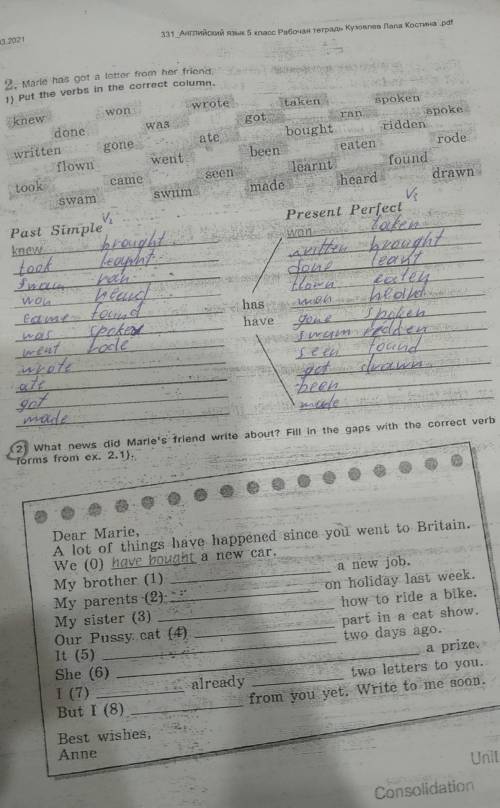 03.2021
331_Английский язык 5 класс Рабочая тетрадь Кузовлев Лапа Костина .pdf
2. Marie has got a letter from her friend.
1) Put the verbs in the correct column.
knew won wrote taken spoken
done was got ran spoke
written gone ate bought ridden
flown went been eaten rode
took came seen learnt found
swam swum made heard drawn
Past Simple V2
knew brought
took learnt
swam ran
won heard
came found
was spoke
went rode
wrote
ate
got
made
has
have
Present Perfect V3
won taken
written brought
done leant
flown eaten
won heard
gone spoken
swum redden
seen found
got drawn
been
made
2) What news did Marie's friend write about? Fill in the gaps with the correct verb
forms from ex. 2.1).
Dear Marie,
A lot of things have happened since you went to Britain.
We (0) have bought a new car.
My brother (1) a new job.
My parents (2) on holiday last week.
My sister (3) how to ride a bike.
Our Pussy cat (4) part in a cat show.
It (5) two days ago.
She (6) a prize.
I (7) already two letters to you.
But I (8) from you yet. Write to me soon.
Best wishes,
Anne
Unit
Consolidation